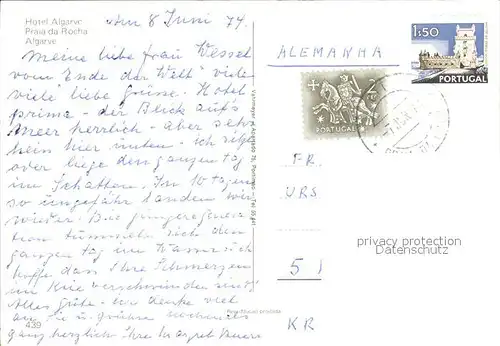 Hotel Algarve
Praia da Rocha
Algarve
Am 8 Juni 74.
Meine liebe Frau Wessel
vom Ende der Welt viele
viele liebe Grüsse. Hotel
prima - der Blick aufs
Meer herrlich - aber sehr
heiss hier unten - ich sitze
oder liege den ganzen tag
im Schatten. In 10 tagen
so ungefähr landen wir
wieder. Die junge
tummeln sich den
ganzen tag im Wasser. Ich
hoffe dass Ihre Schmerzen
im Knie verschwunden sind.
Alles gute - wir denke viel
an Sie u. grüsse nochmals
ganz herzlich Ihre Margret
439
ALEMANHA
1$50
PORTUGAL
PORTUGAL
FR
URS
5
KR
privacy protection
Datenschutz